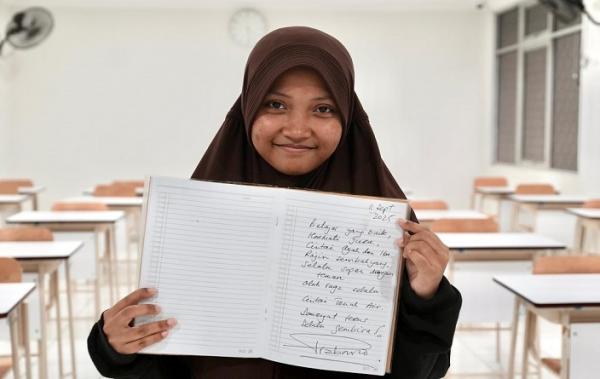 11 Sept
2025
Belajar yang baik,
Hormati Guru,
Cintai Ayah dan Ibu
Rajin Sembahyang,
Selalu sopan dengan
teman
olah raga selalu
Cintai Tanah Air.
Semangat terus
Selalu Gembira!
Prabowo